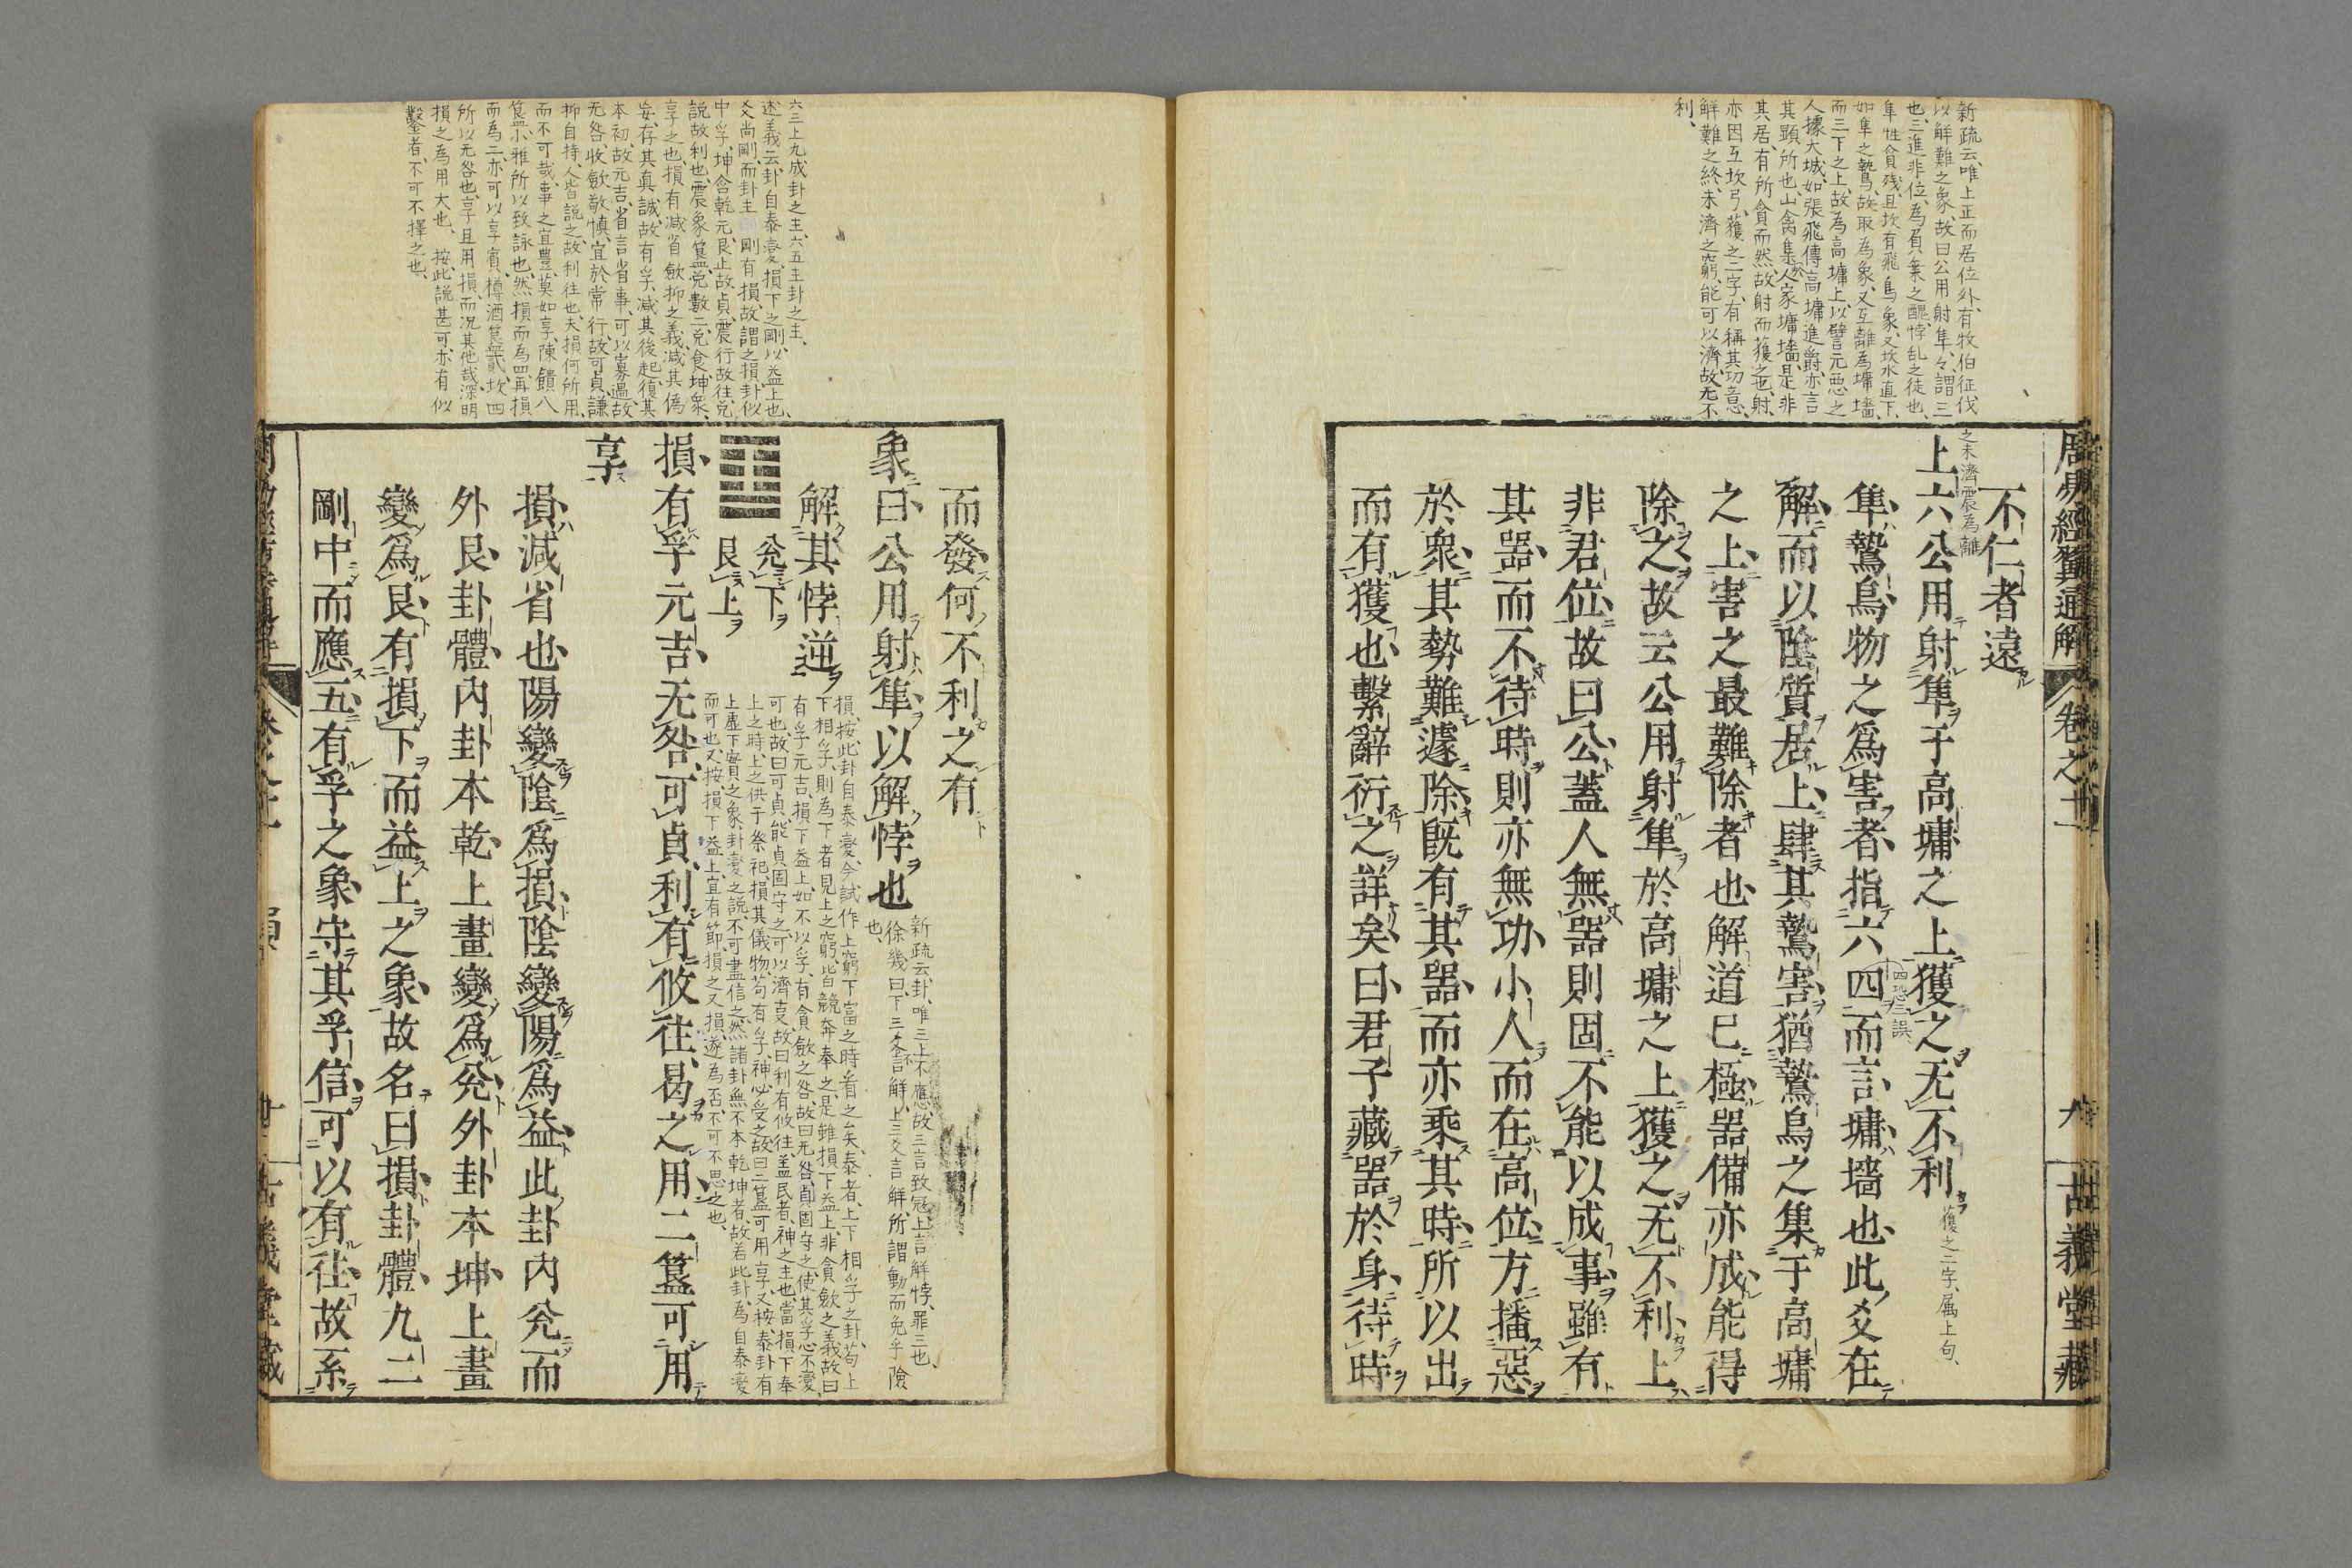 新疏云、唯上正而居位外、有牧伯征伐
以解難之象、故曰公用射隼、々謂三
也、三進非位、為負乗之醜悖乱之徒也、
隼性貪残、且坎有飛鳥象、又坎水直下、
如隼之鷙、故取為象、又互離為墉墻、
而三下之上、故為高墉上、以譬元悪之
人據大城、如張飛傳高墉進爵、亦言
其顕所也、山禽集於人家墉墻、是非
其居、有所貪而然、故射而獲之也、射、
亦因互坎弓、獲之二字、有稱其功意、
解難之終、未濟之窮、能可以濟、故无不
利、
周易經翼通解 卷之十一 九 古義堂藏
不仁者遠
之未濟震為離
上六公用射隼于高墉之上獲之无不利
獲之二字、属上句、
隼鷙鳥物之爲害者指六四而言墉墻也此爻在
四恐三誤
解而以陰質居上肆其鷙害猶鷙鳥之集于高墉
之上害之最難除者也解道已極器備亦成能得
除之故云公用射隼於高墉之上獲之无不利上
非君位故曰公蓋人無器則固不能以成事雖有
其器而不待時則亦無功小人而在高位方播惡
於衆其勢難遽除既有其器而亦乘其時所以出
而有獲也繫辭衍之詳矣曰君子藏器於身待時
六三上九成卦之主、六五主卦之主、
述義云、卦自泰変、損下之剛、以益上也、
爻尚剛、而卦主剛有損、故謂之損、卦似
中孚、坤含乾元、艮止故貞、震行故往、兌
説故利也、震象簋、兌數二、兌食、坤衆、
享之也、損有減省斂抑之義、減其偽
妄、存其真誠、故有孚、減其後起、復其
本初、故元吉、省言省事、可以寡過、故
无咎、收斂敬慎、宜於常行、故可貞、謙
抑自持、人皆説之、故利往也、夫損何所用、
而不可哉、事之宜豊、莫如享、陳饋八
簋、小雅所以致詠也、然損而為四、再損
而為二、亦可以享賓、樽酒簋貳、坎四
所以无咎也、享且用損、而况其他哉、深明
損之為用大也、 按、此説甚可、亦有似
鑿者、不可不擇之也、
而發何不利之有
象曰公用射隼以解悖也
新疏云、卦、唯三上不應、故三言致冦、上言解悖、罪三也、
徐幾曰、下三爻不言解、上三爻言解、所謂動而免乎險
也、
解其悖逆
兌下
艮上
損、按、此卦自泰変、今試作上窮下富之時看之矣、泰者、上下相孚之卦、苟上
下相孚、則為下者見上之窮、皆競奔奉之、是雖損下益上、非貪斂之義、故曰
有孚元吉、損下益上、如不以孚、有貪斂之咎、故曰无咎、貞固守之、使其孚心不変、
可也、故曰可貞、能貞固守之、可以濟吏、故曰利有攸往、盖民者、神之主也、當損下奉
上之時、上之供于祭祀、損其儀物、苟有孚、神必受之、故曰二簋可用享、又按、泰卦有
上虚下實之象、卦変之説、不可盡信之、然諸卦無不本乾坤者、故若此卦、為自泰変
而可也、又按、損下益上、宜有節、損之又損、遂為否、不可不思之也、
損有孚元吉无咎可貞利有攸往曷之用二簋可用
享
損減省也陽變陰爲損陰變陽爲益此卦內兌而
外艮卦體內卦本乾上畫變爲兌外卦本坤上畫
變爲艮有損下而益上之象故名曰損卦體九二
剛中而應五有孚之象守其孚信可以有往故系